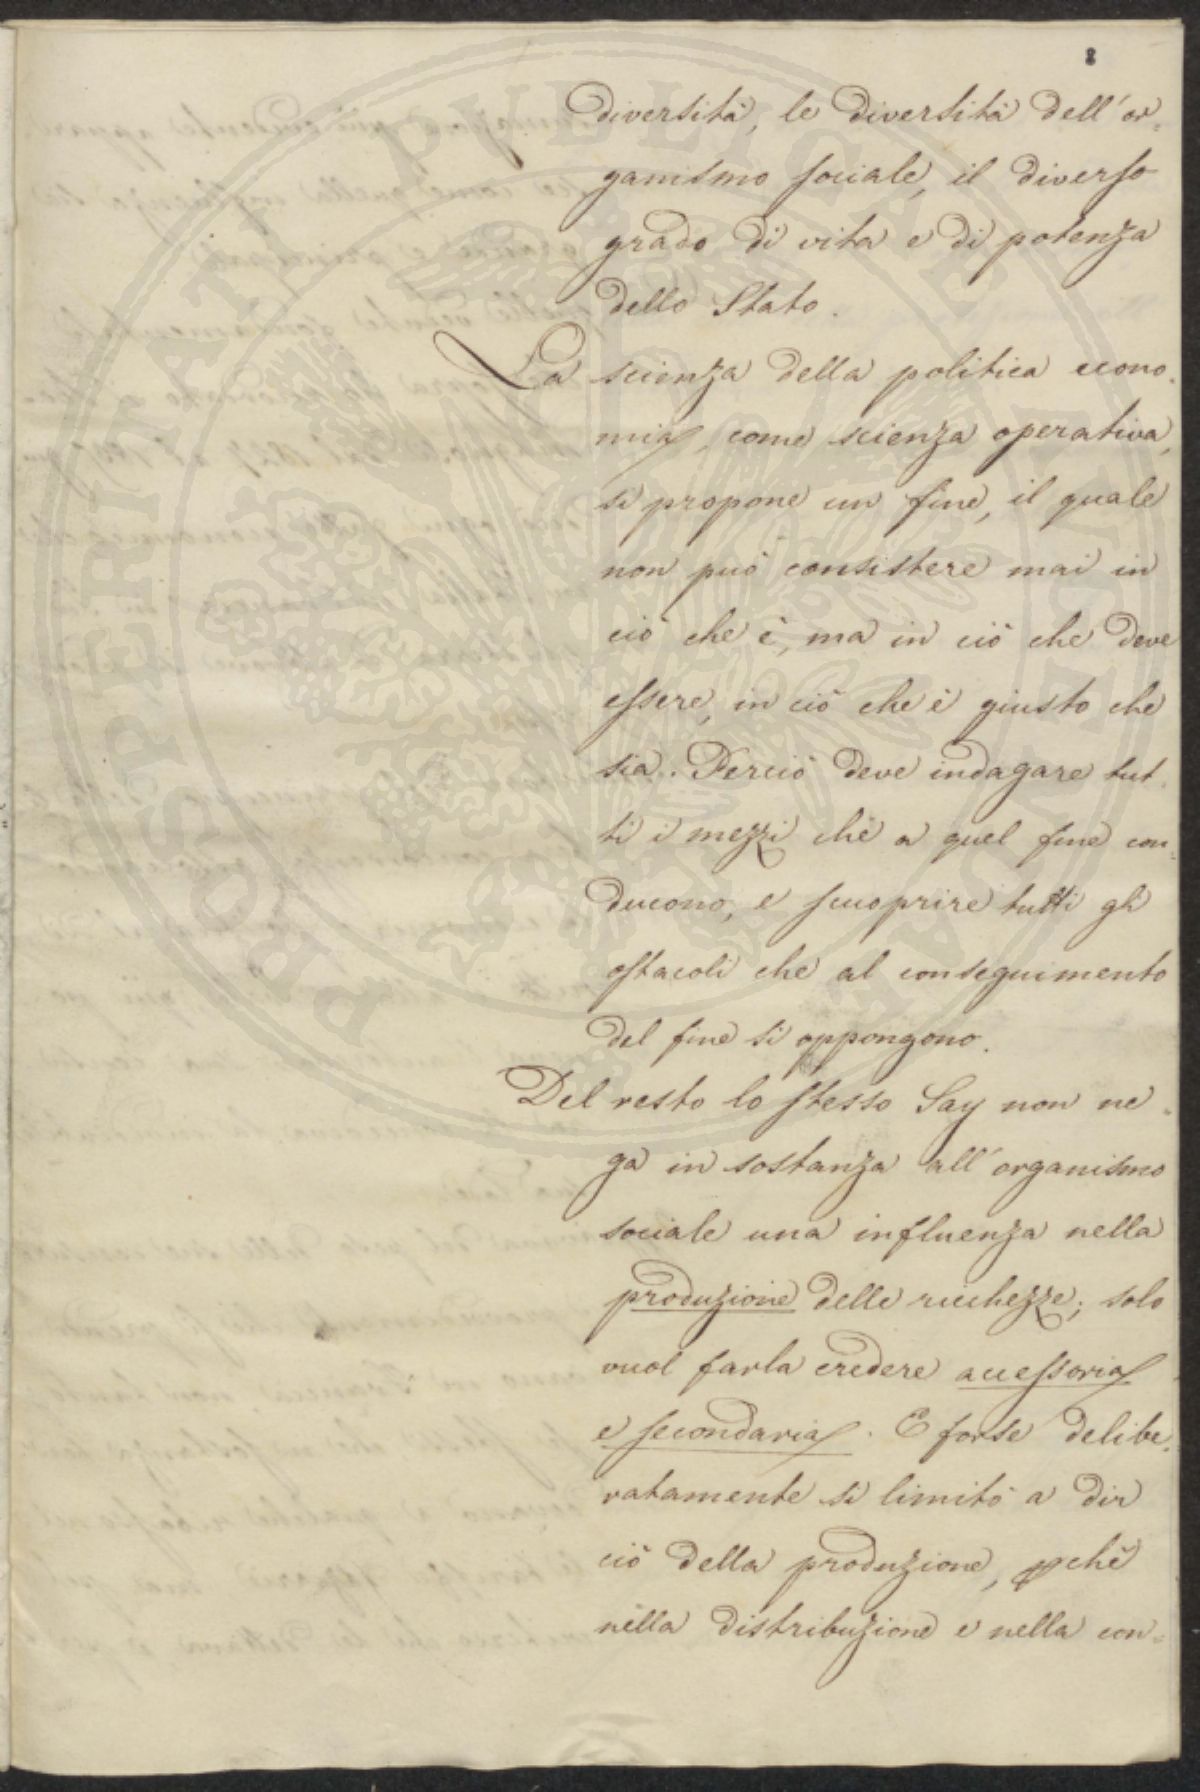 8
diversità, le diversità dell'or=
ganismo sociale, il diverso
grado di vita e di potenza
dello Stato.
La scienza della politica econo=
mia, come scienza operativa,
si propone un fine, il quale
non può consistere mai in
ciò che è, ma in ciò che deve
essere, in ciò che è giusto che
sia. Perciò deve indagare tut=
ti i mezzi che a quel fine con=
ducono, e scuoprire tutti gli
ostacoli che al conseguimento
del fine si oppongono.
Del resto lo stesso Say non ne=
ga in sostanza all'organismo
sociale una influenza nella
produzione delle ricchezze; solo
vuol farla credere accessoria
e secondaria. E forse delibe=
ratamente si limitò a dir
ciò della produzione, pchè
nella distribuzione e nella con=
PROSPERITATI PUBLICAE AUGENDAE